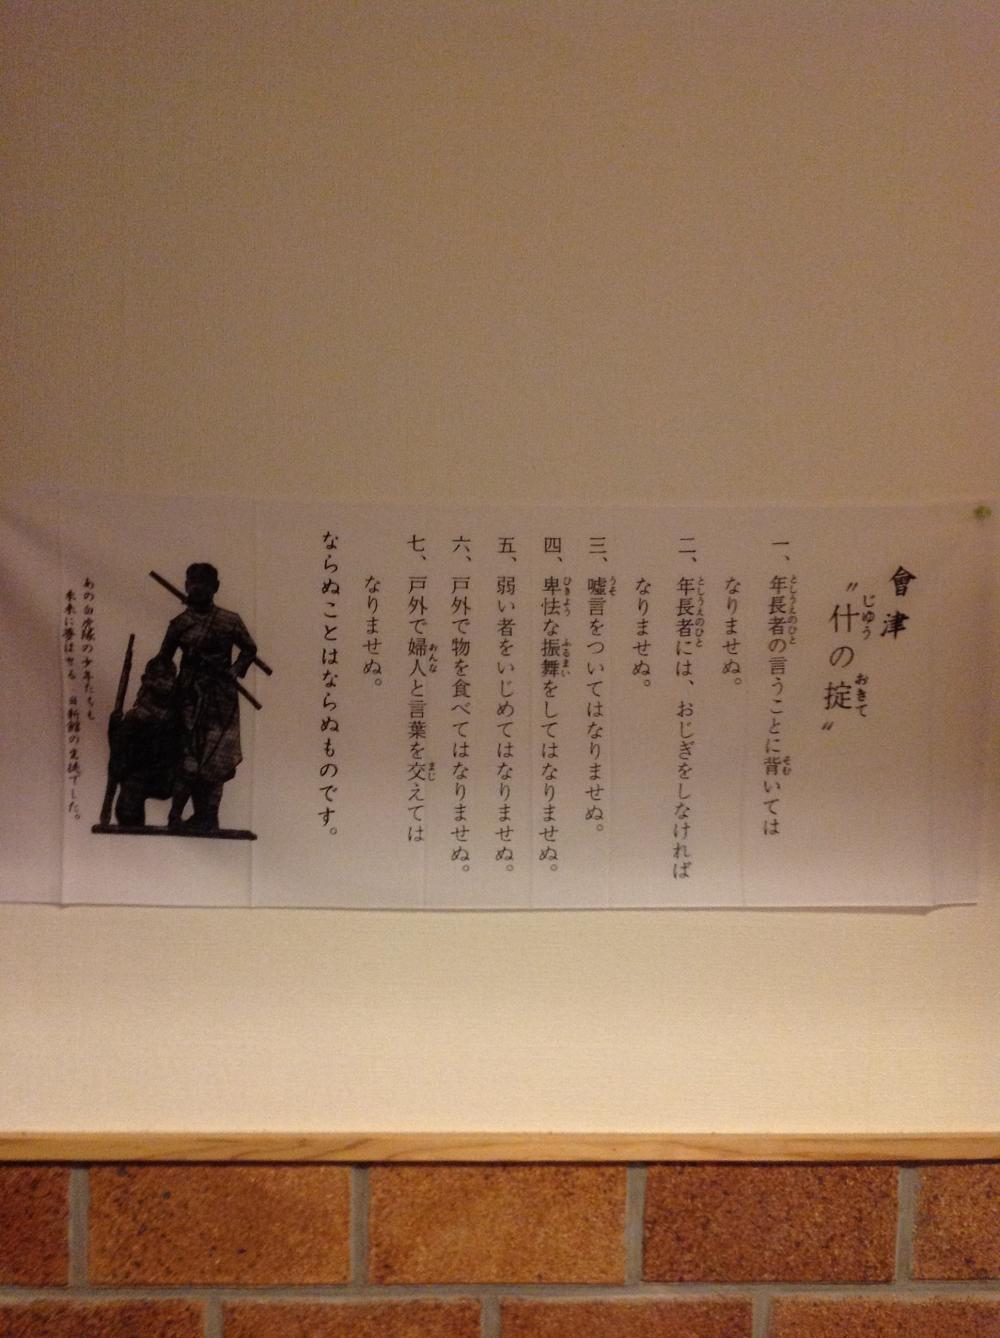 會津
"什の掟"
じゅう
おきて
一、年長者の言うことに背いては
としうえのひと
そむ
なりませぬ。
二、年長者には、おじぎをしなければ
としうえのひと
なりませぬ。
三、嘘言をついてはなりませぬ。
うそ
四、卑怯な振舞をしてはなりませぬ。
ひきょう
ふるまい
五、弱い者をいじめてはなりませぬ。
六、戸外で物を食べてはなりませぬ。
七、戸外で婦人と言葉を交えては
おんな
まじ
なりませぬ。
ならぬことはならぬものです。
あの白虎隊の少年たちも
未来に夢はせる 日新館の生徒でした。